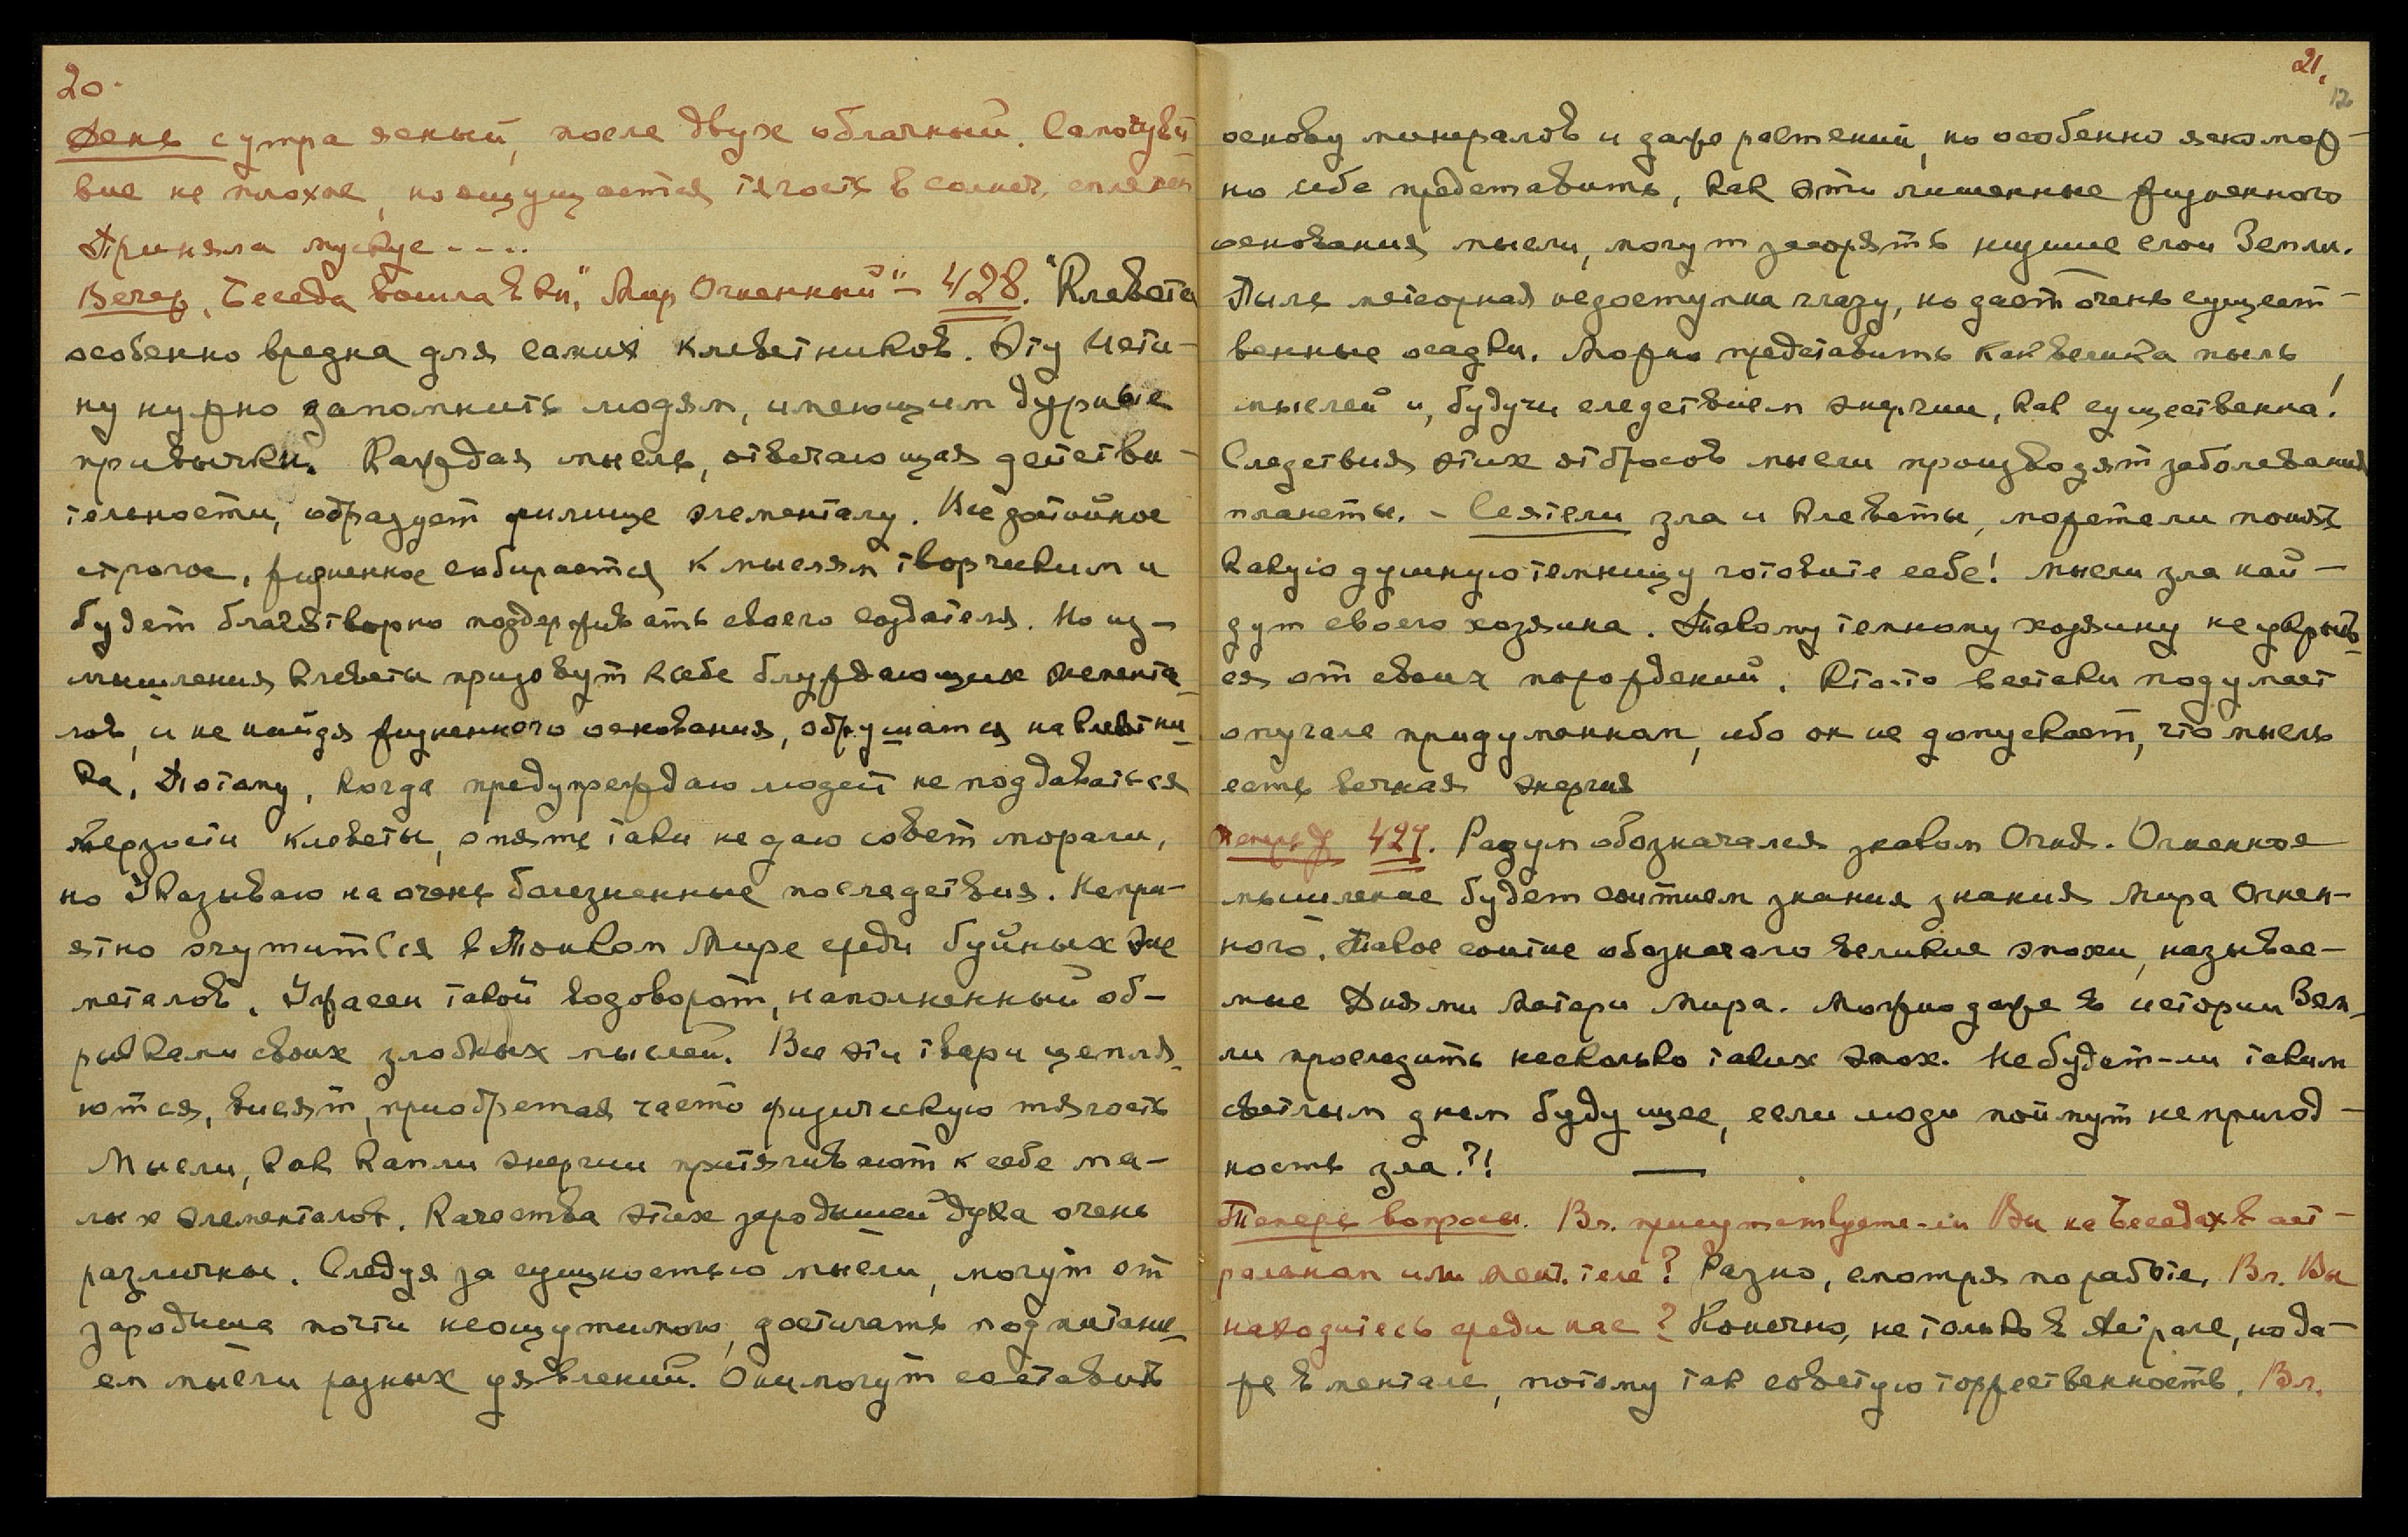 20.
День с утра ясный, после двух облачный. Самочувст
вие не плохое, но ощущается тягость в солнеч. сплетен
Приняла мускус - - ..
Вечер, Беседа вошла в кн. "Мир Огненный" - 428. "Клевета
особенно вредна для самих клеветников. Эту Исти-
ну нужно запомнить людям, имеющим дурные
привычки. Каждая мысль, отвечающая действи-
тельности, образует жилище элементалу. Все достойное
строгое, жизненное собирается к мыслям творческим и
будет благотворно поддерживать своего создателя. Но из-
мышления клеветы призовут к себе блуждающих элемента-
лов, и не найдя жизненного основания, обрушатся на клеветни-
ка. Потому, когда предупреждаю людей не поддаваться
мерзости клеветы, опять таки не даю совет морали,
но Указываю на очень болезненные последствия. Непри-
ятно очутиться в Тонком Мире среди буйных эле
металов. Ужасен такой водоворот, наполненный об-
рывками своих злобных мыслей. Все эти твари цепля-
ются, висят, приобретая часто физическую тягость
Мысли, как капли энергии притягивают к себе ма-
лых элементалов. Качества этих зародышей духа очень
различны. Следуя за сущностью мысли, могут от
зародыша почти неощутимого, достигать под питани-
ем мысли разных уявлений. Они могут составить
21.
12
основу минералов и даже растений, но особенно ясно мож-
но себе представить, как эти лишенные жизненного
основания мысли, могут засорять низшие слои Земли.
Пыль метеорная недоступна глазу, но дает очень сущест-
венные осадки. Можно представить как велика пыль
мыслей и, будучи следствием энергии, как существенна!
Следствия этих отбросов мысли производят заболевания
планеты. - Сеятели зла и клеветы, можете ли понять
какую душную темницу готовите себе! Мысли зла най-
дут своего хозяина. Такому темному хозяину не укрыть-
ся от своих порождений. Кто-то всетаки подумает
о пугале придуманном, ибо он не допускает, что мысль
есть вечная энергия
429. Разум обозначался знаком Огня. Огненное
мышление будет соитием знания знания Мира Огнен-
ного. Такое соитие обозначало великие эпохи, называе-
мые Днями Матери Мира. Можно даже в истории Зем-
ли проследить несколько таких эпох. Не будет-ли таким
светлым днем будущее, если люди поймут непригод-
ность зла?! —
Теперь вопросы. Вл. присутствуете-ли Вы на Беседах в аст-
ральном или мент. теле? Разно, смотря по работе. Вл. Вы
находитесь среди нас? Конечно, не только в Астрале, но да-
же в ментале, потому так советую торжественность. Вл.